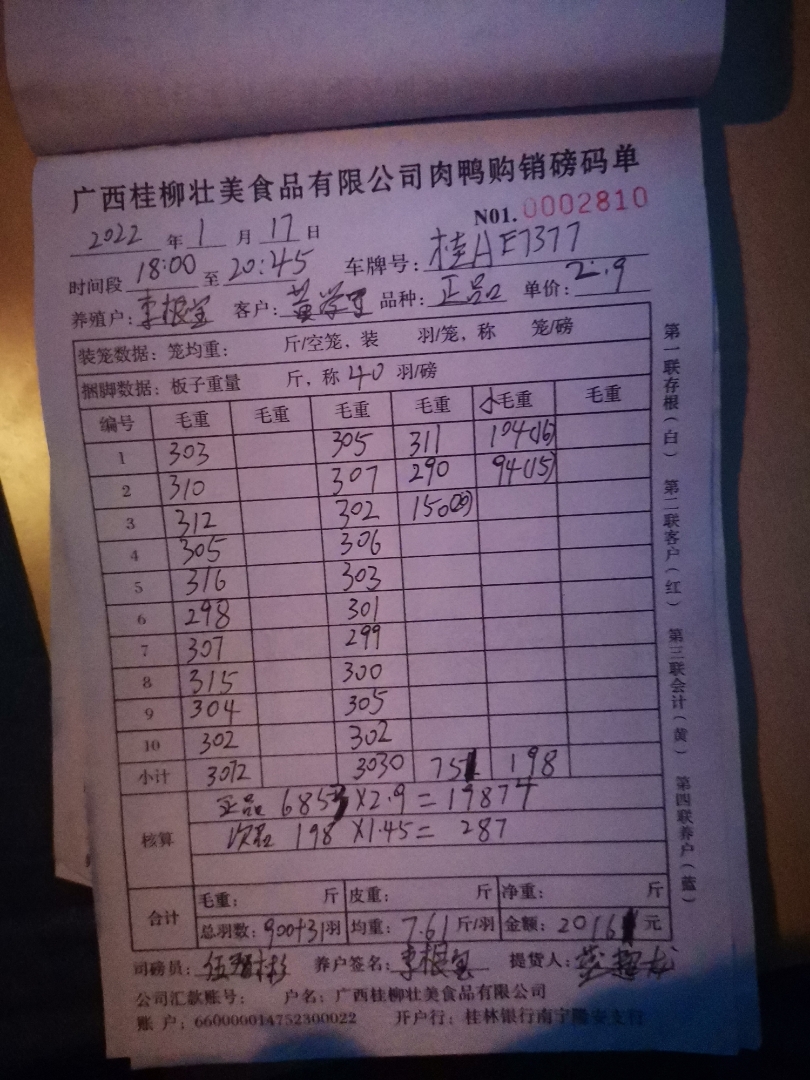 广西桂柳壮美食品有限公司肉鸭购销磅码单
N01. 0002810
2022 年 1 月 17 日
时间段 18:00 至 20:45 车牌号: 桂AE7377
养殖户: 李根宝 客户: 黄学 品种: 正品 单价: 2.9
装笼数据: 笼均重: 斤/空笼, 装 羽/笼, 称 笼/磅
捆脚数据: 板子重量 斤, 称 40 羽/磅
编号 毛重 毛重 毛重 毛重 小毛重 毛重
1 303 305 311 104(16)
2 310 307 290 94(15)
3 312 302 150(20)
4 305 306
5 316 303
6 298 301
7 307 299
8 315 300
9 304 305
10 302 302
小计 3072 3030 751 198
核算
正品 6853×2.9=19874
次品 198×1.45=287
合计
毛重: 斤 皮重: 斤 净重: 斤
总羽数: 900+31羽 均重: 7.61 斤/羽 金额: 20161 元
司磅员: 伍 彬 养户签名: 李根宝 提货人: 超龙
公司汇款账号: 户名: 广西桂柳壮美食品有限公司
账 户: 660000014752300022 开户行: 桂林银行南宁隆安支行
第一联存根(白) 第二联客户(红) 第三联会计(黄) 第四联养户(蓝)